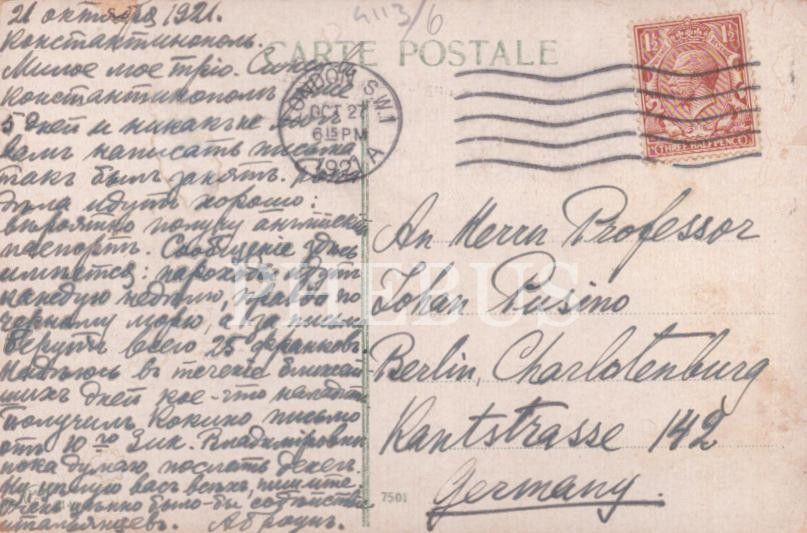 4113/6
CARTE POSTALE
21 октября 1921.
Константинополь.
Милое мое трiо. Сижу
Константинополѣ уже
5 дней и никакъ не
вамъ написать письма
такъ былъ занятъ. Пока
дѣла идутъ хорошо:
вѣроятно получу английскiй
паспортъ. Сообщенiе здѣсь
имѣется: пароходы идутъ
каждую недѣлю, по
черному морю, а за
берутъ всего 25 франковъ.
Надѣюсь въ теченiе ближай
шихъ дней кое-что
Получилъ Кокино письмо
отъ 10го Зин. Владимiровны
пока думаю, послать денегъ.
Ну цѣлую васъ всѣхъ, пишите.
Очень цѣнно было-бы содѣйствiе
итальянцевъ.
LONDON S.W.1
OCT 27
6 15 PM
1921
A
THREE HALFPENCE
1½ 1½
An Herrn Professor
Johan Pusino
Berlin, Charlotenburg
Kantstrasse 142
Germany.
7501
PHEBUS